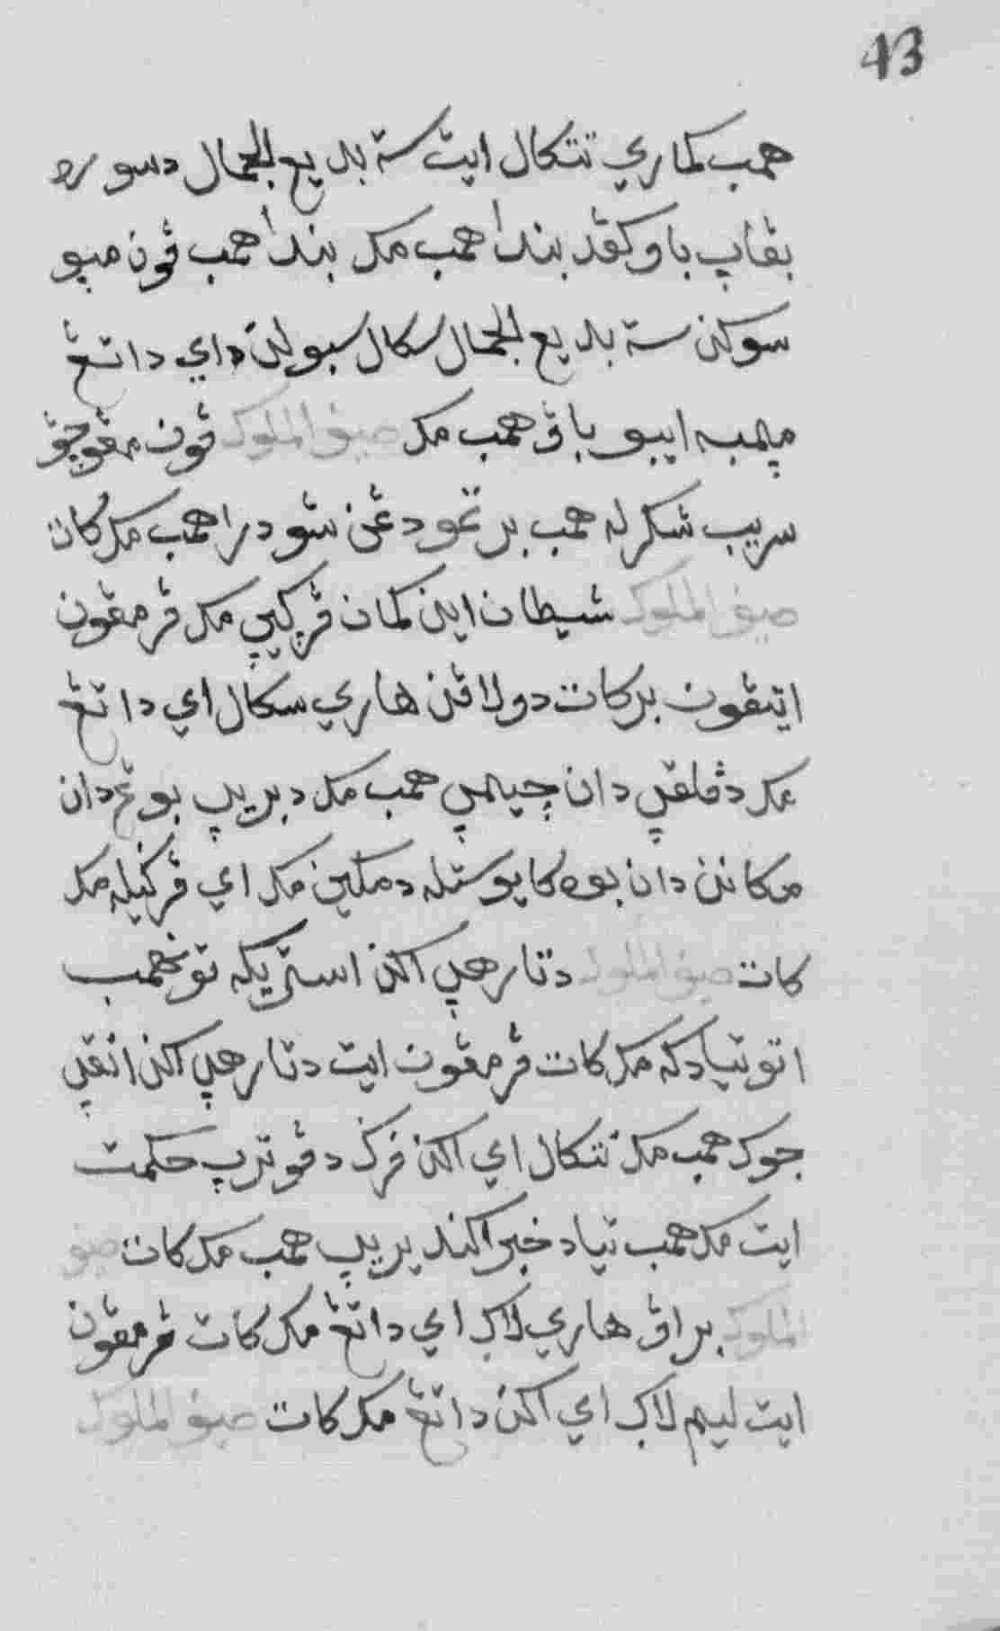 43
همب كماري تتكال ايت سته بديع الجمال دسوره
بڤاپ باو كڤد بنداهمب مک بنداهمب ڤون مپو
سوكن سته بديع الجمال سكال سبولن داي داتڠ
مپمبه ايبو باڤ همب مک صيف الملوک ڤون مڠوچڤ
سريب شكرله همب برتمو دڠن سودرا همب مک كات
صيف الملوک شيطان اين كمان ڤركيپ مک ڤرمڤون
ايتڤون بركات دولاڤن هاري سكال اي داتڠ
مک دڤلڤپ دان چيمپ همب مک دبريپ بوڠ دان
مكانن دان بوه كايو ستله دمكين مک اي ڤرڬيله مک
كات صيف الملوک دتارهپ اكن استريكه تونهمب
اتو تيادكه مک كات ڤرمڤون ايت دتارهپ اكن انقپ
جوک همب مک تتكال اي اكن ڤرڬ دڤوترپ حكمت
ايت مک همب تياد خبر اكند يريپ همب مک كات صيف
الملوک براڤ هاري لاڬ اي داتڠ مک كات ڤرمڤون
ايت ليم لاڬ اي اكن داتڠ مک كات صيف الملوک